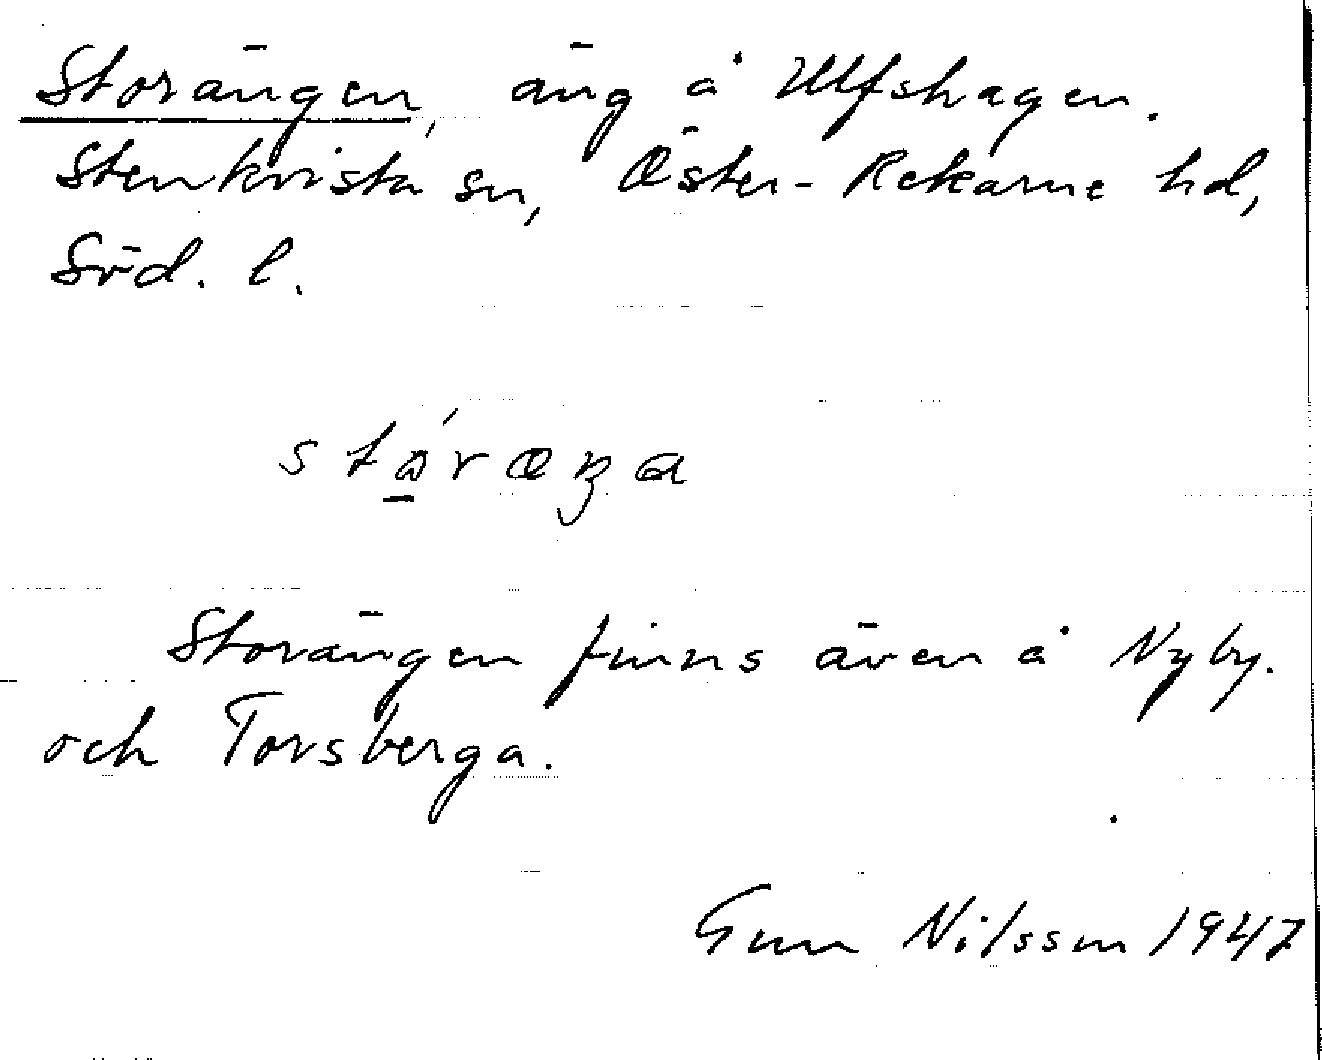 Storängen, äng å Ulfshagen.
Stenkvista sn, Öster-Rekarne hd,
Söd. l.
Storängen finns även å Nyby.
och Torsberga.
Gun Nilsson 1947